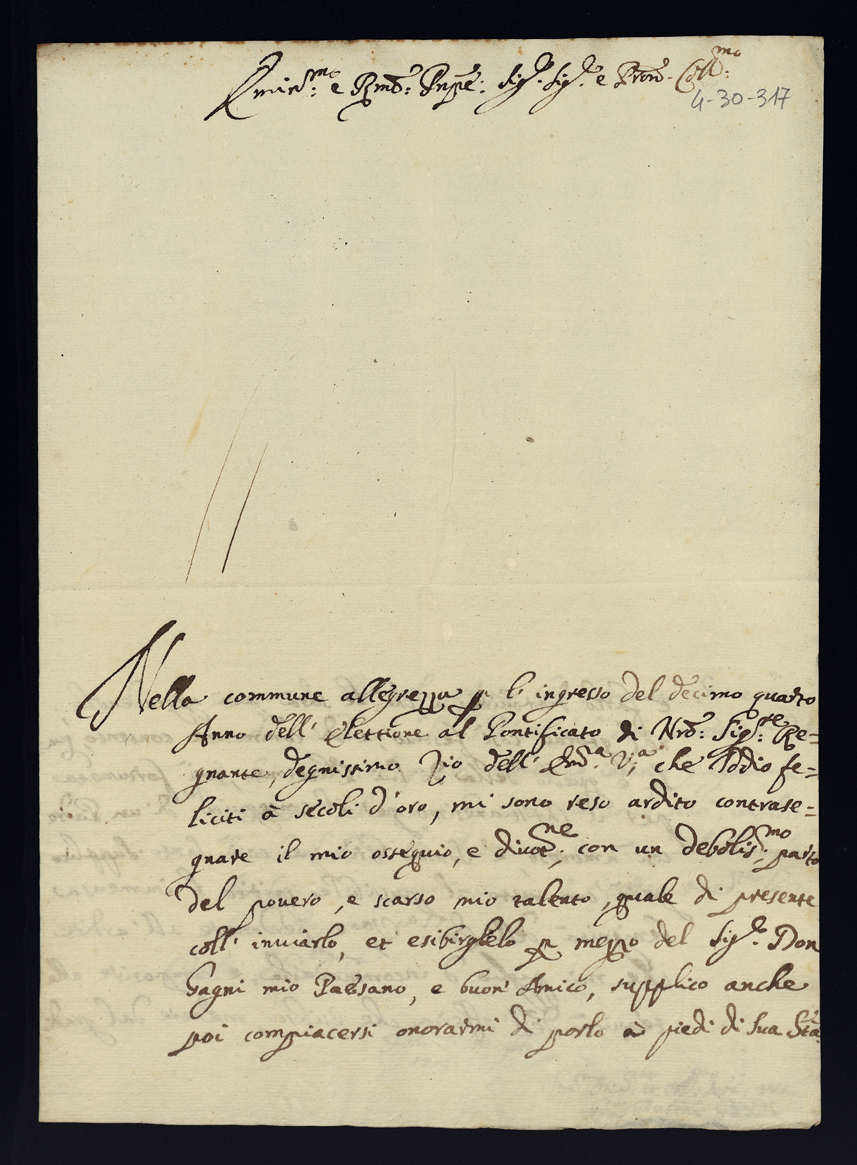 Emin.mo: e Rmô: Pnpe: Sig.r Sig.r e Pron. Coll.mo:
4-30-317
Nella commune allegrezza p l' ingresso del decimo quarto
Anno dell' elettione al Pontificato di Nrô: Sig.re: Re=
gnante, degnissimo Zio dell' Emâ. V.a che Iddio fe=
liciti à secoli d'oro, mi sono reso ardito contrase=
gnare il mio ossequio, e divot.ne; con un debolis.mo: parto
del povero, e scarso mio talento, quale di presente
coll' inviarlo, et esibirglelo p mezzo del Sig.r Don
Gagni mio Paesano, e buon' Amico, supplico anche
poi compiacersi onorarmi di porlo à piedi di Sua Stà